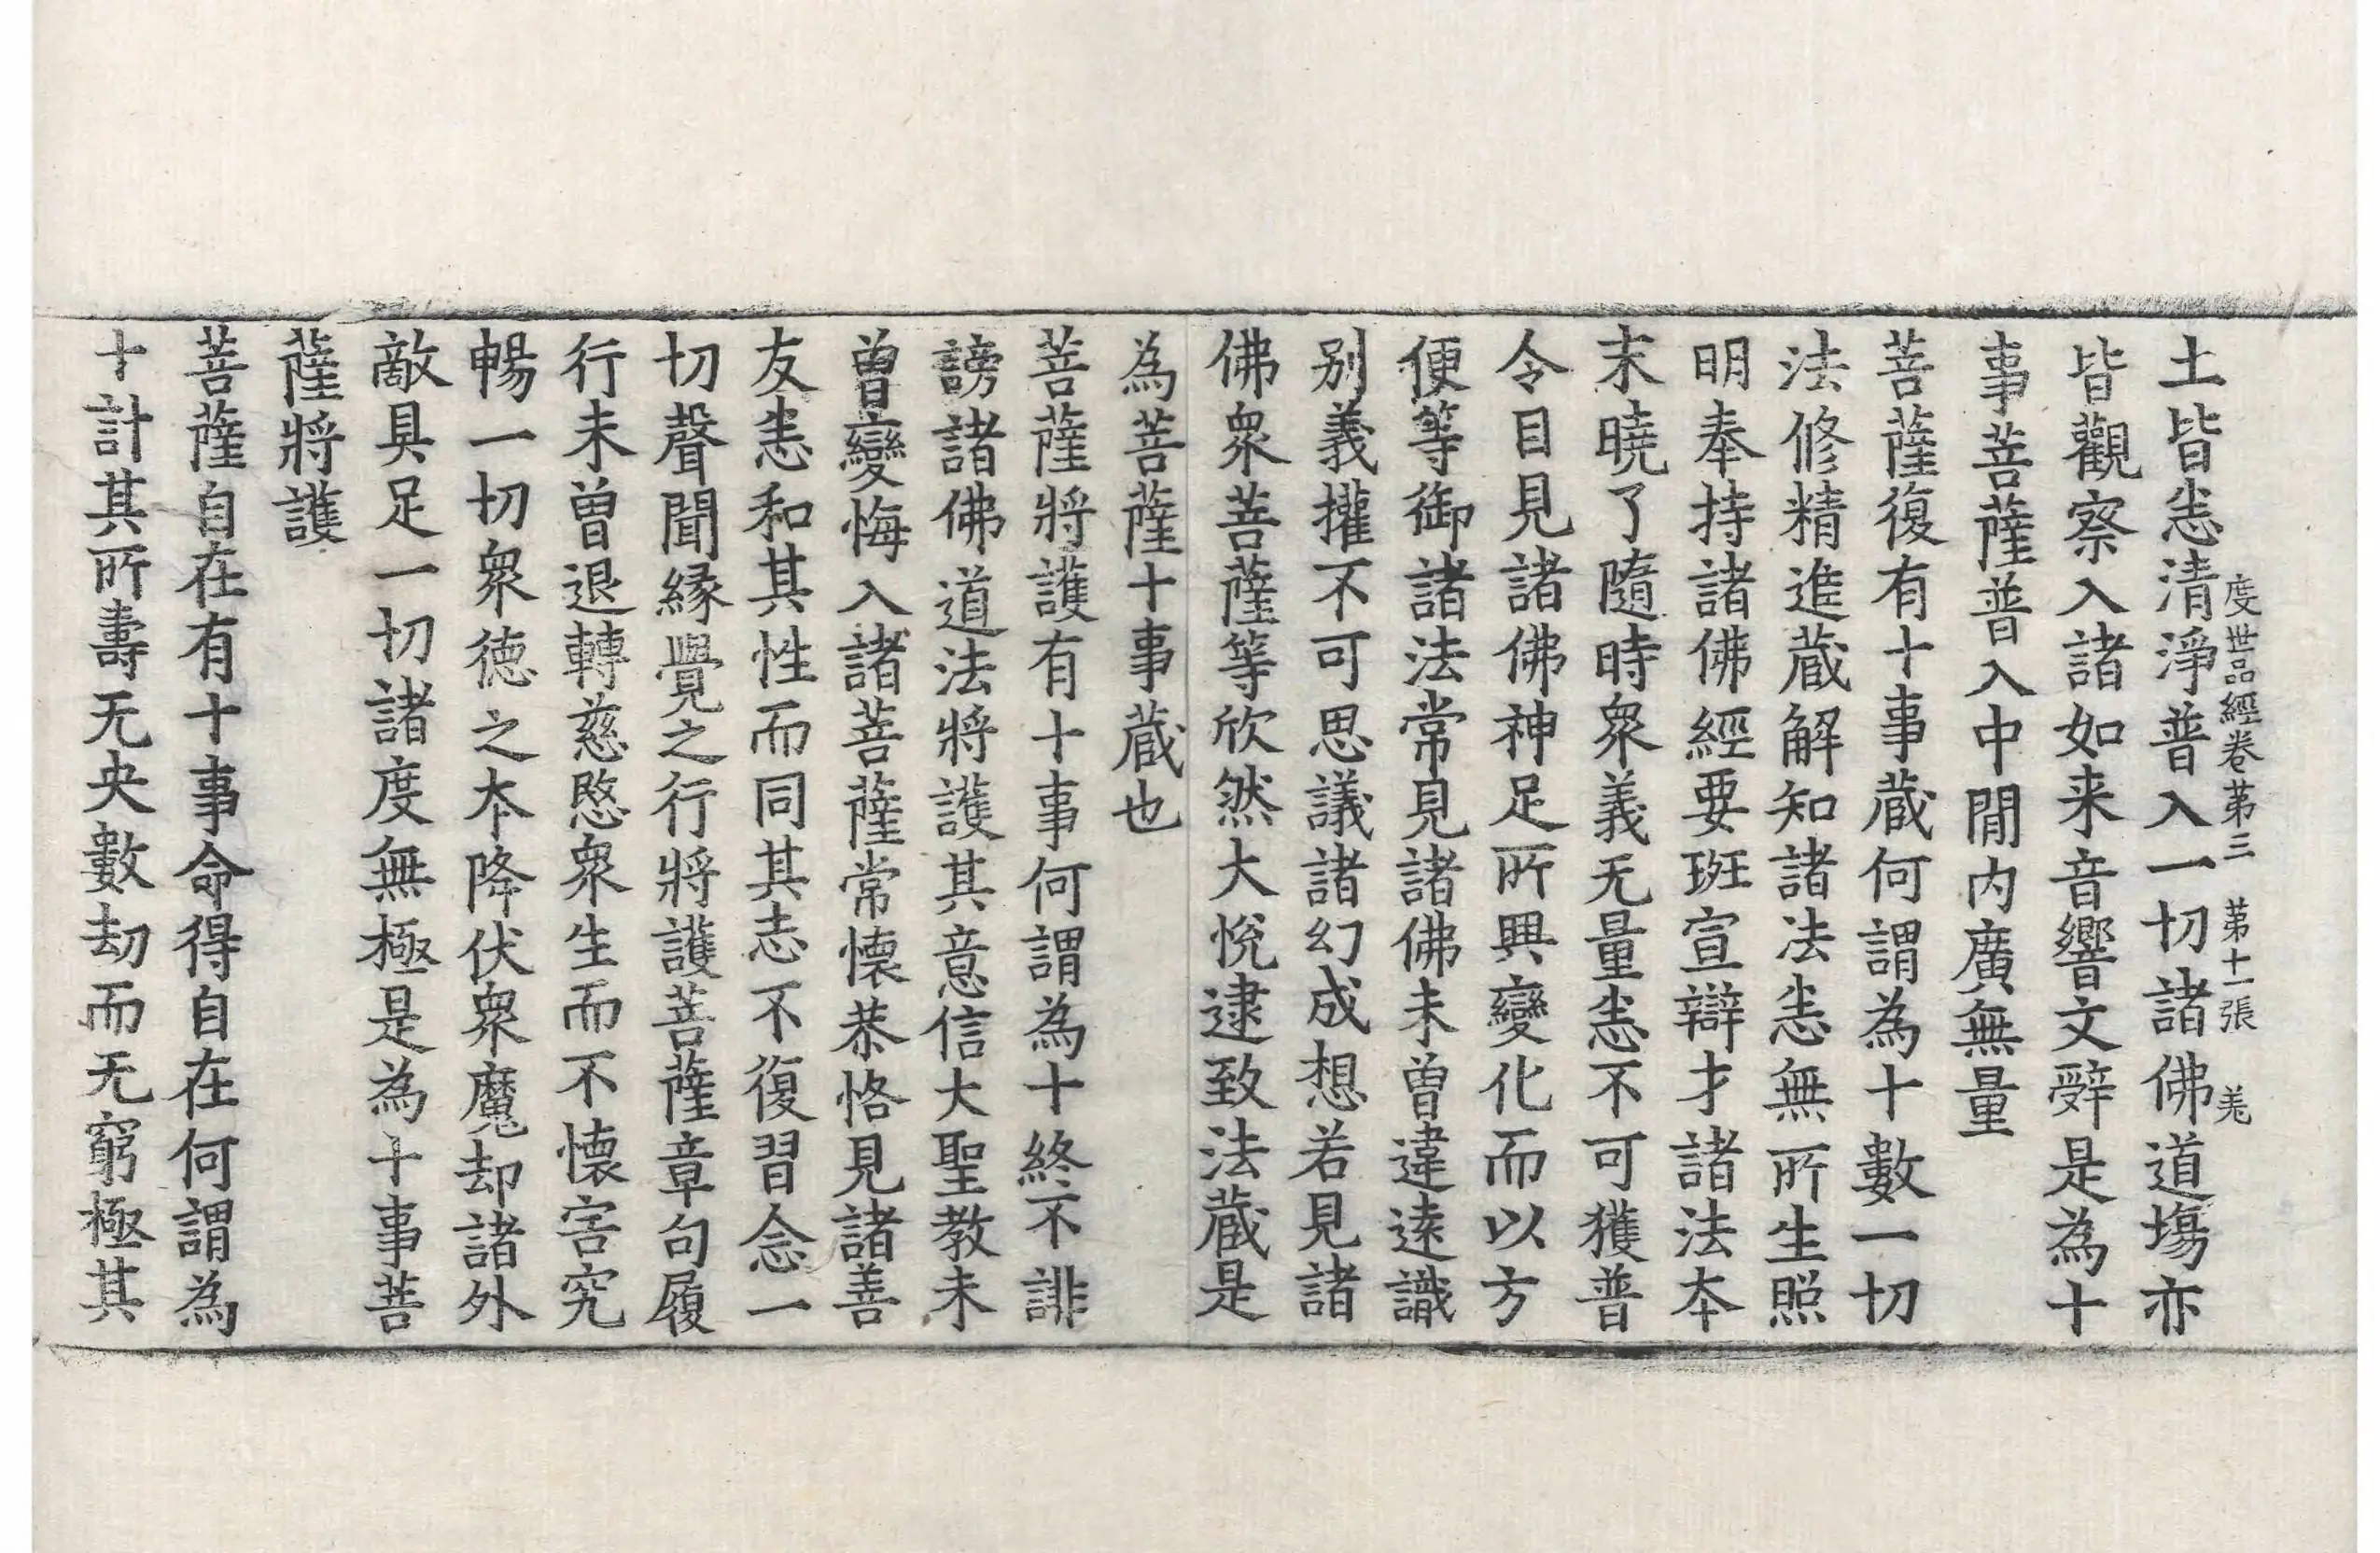 度世品經卷第三　第十一張　羌
土皆悉清淨普入一切諸佛道場亦
皆觀察入諸如来音響文辭是為十
事菩薩普入中閒内廣無量
菩薩復有十事蔵何謂為十數一切
法修精進蔵解知諸法悉無所生照
明奉持諸佛經要班宣辯才諸法本
末曉了隨時衆義无量悉不可獲普
令目見諸佛神足所興變化而以方
便等御諸法常見諸佛未曽違遠識
别義權不可思議諸幻成想若見諸
佛衆菩薩等欣然大悅逮致法蔵是
為菩薩十事蔵也
菩薩將護有十事何謂為十終不誹
謗諸佛道法將護其意信大聖教未
曽變悔入諸菩薩常懷恭恪見諸善
友悉和其性而同其志不復習念一
切聲聞縁覺之行將護菩薩章句履
行未曽退轉慈愍衆生而不懷害究
暢一切衆德之本降伏衆魔却諸外
敵具足一切諸度無極是為十事菩
薩將護
菩薩自在有十事命得自在何謂為
十計其所壽无央數劫而无窮極其